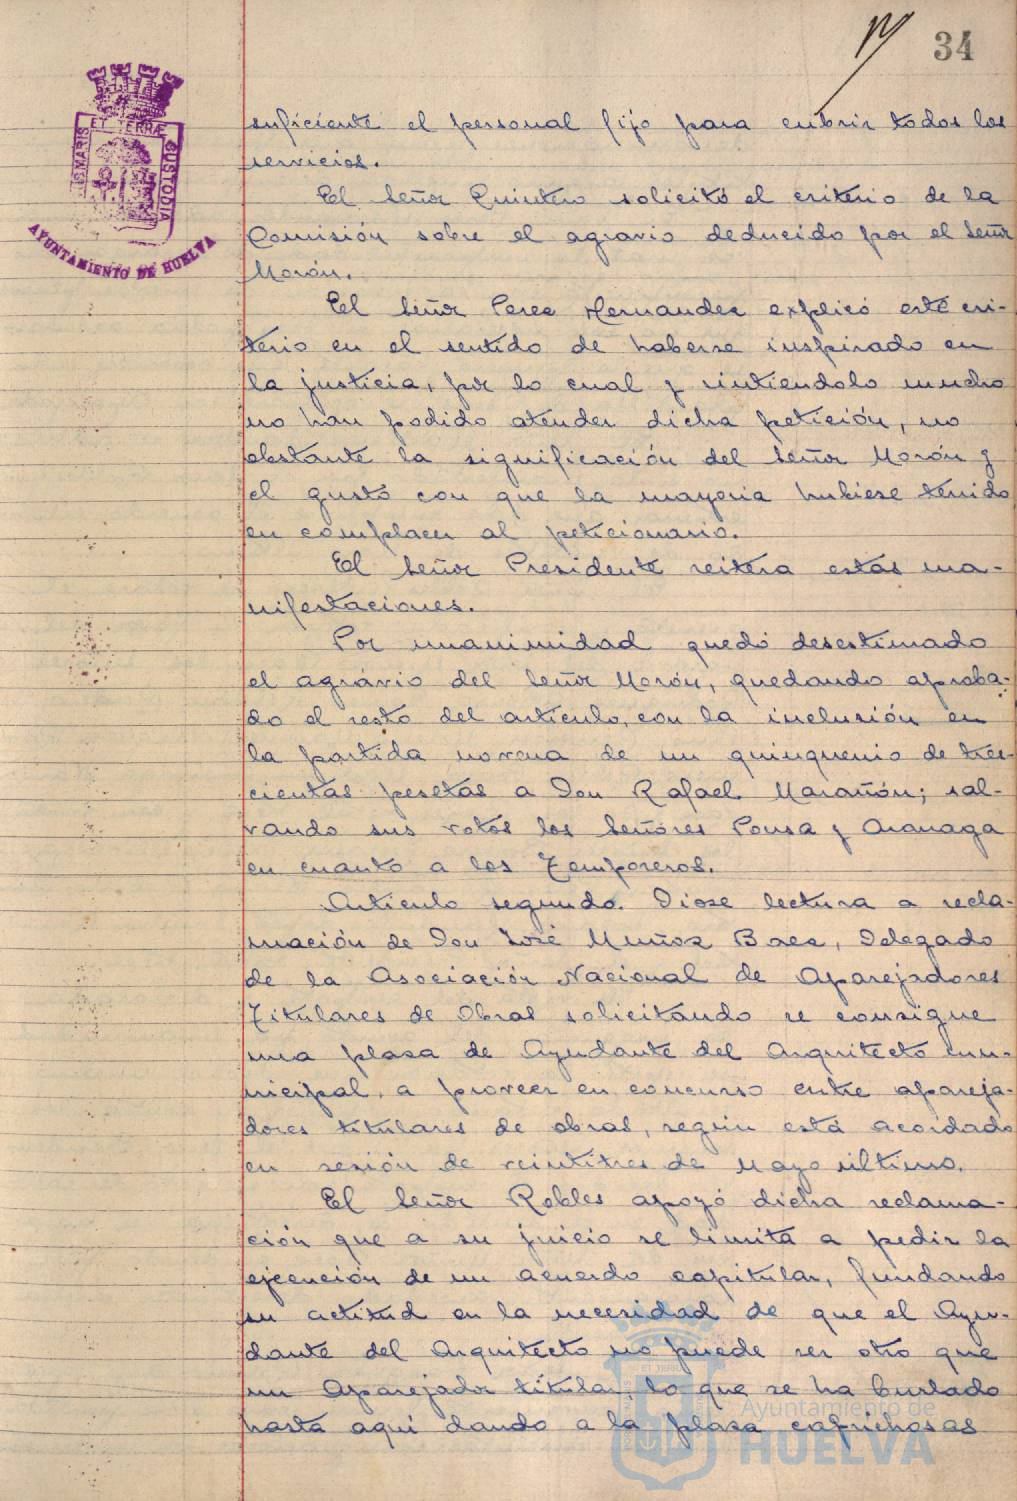 34
ET TERRÆ
CUSTODIA
MARIS
AYUNTAMIENTO DE HUELVA
suficiente el personal fijo para cubrir todos los
servicios.
El Señor Quintero solicitó el criterio de la
Comisión sobre el agravio deducido por el Señor
Morón.
El Señor Perez Hernandez explicó este cri-
terio en el sentido de haberse inspirado en
la justicia, por lo cual y sintiendolo mucho
no han podido atender dicha petición, no
obstante la significación del Señor Morón y
el gusto con que la mayoria hubiese tenido
en complacer al peticionario.
El Señor Presidente reitera estas ma-
nifestaciones.
Por unanimidad quedó desestimado
el agravio del Señor Morón, quedando aproba-
do el resto del artículo, con la inclusión en
la partida novena de un quinquenio de tres-
cientas pesetas a Don Rafael Marañón; sal-
vando sus votos los Señores Ponsa y Aranaga
en cuanto a los Temporeros.
Artículo segundo. Diose lectura a recla-
mación de Don José Muñoz Baez, Delegado
de la Asociación Nacional de Aparejadores
Titulares de Obras solicitando se consigne
una plaza de Ayudante del Arquitecto mu-
nicipal, a proveer en concurso entre apareja-
dores titulares de obras, según está acordado
en sesión de veintitres de Mayo último.
El Señor Robles apoyó dicha reclama-
ción que a su juicio se limita a pedir la
ejecución de un acuerdo capitular, fundando
su actitud en la necesidad de que el Ayu-
dante del Arquitecto no puede ser otro que
un Aparejador titular, lo que se ha burlado
hasta aquí dando a la plaza caprichosas
Ayuntamiento de
HUELVA